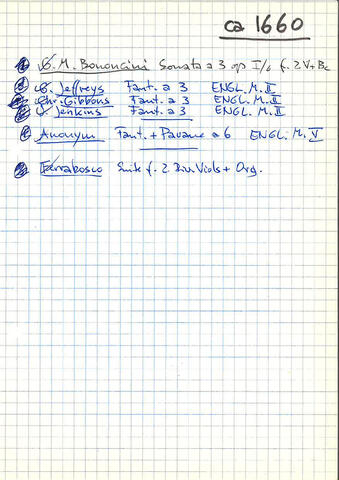 ca 1660
G. M. Bononcini Sonata a 3 op I/6 f. 2 V + Bc
G. Jeffreys Fant. a 3 ENGL. M. II
Chr. Gibbons Fant. a 3 ENGL. M. II
J. Jenkins Fant. a 3 ENGL. M. II
Anonym Fant. + Pavane a 6 ENGL. M. V
Ferrabosco Suite f. 2 Div. Viols + Org.